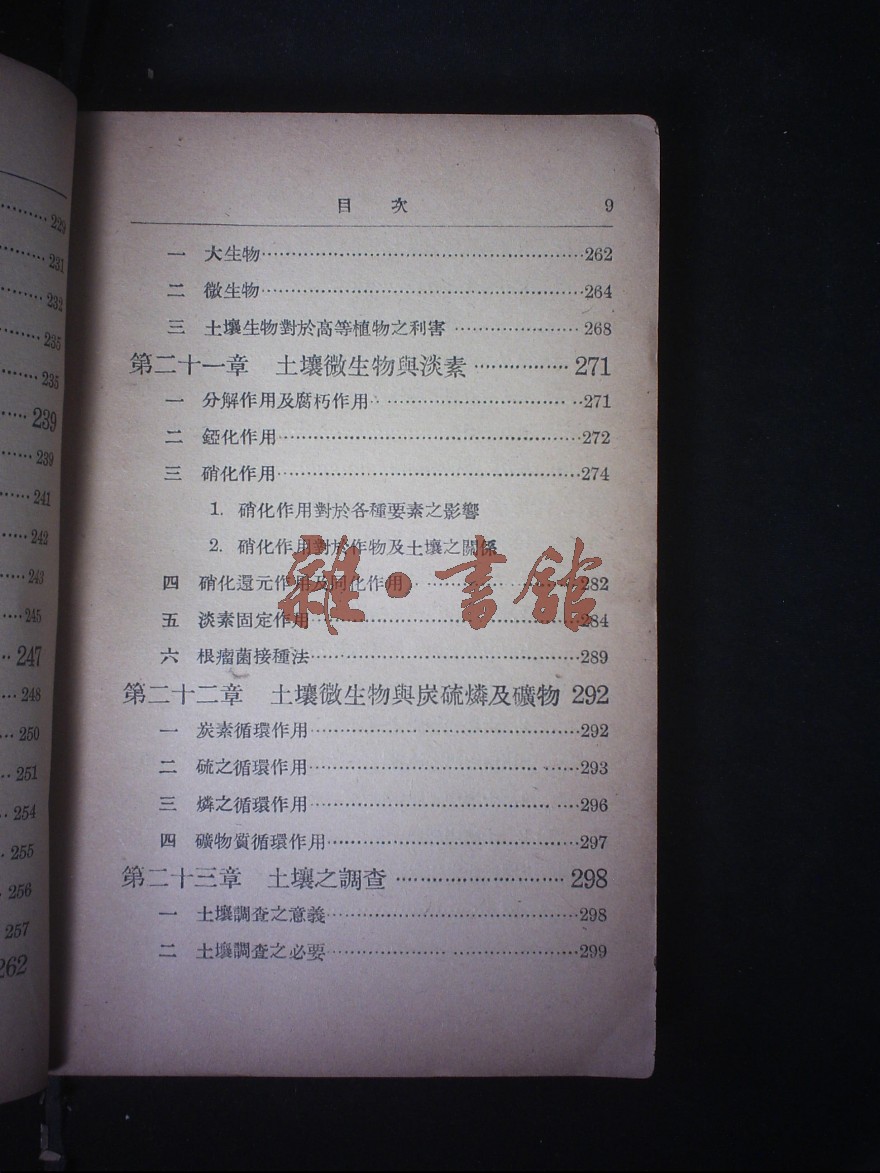 229
231
232
235
235
239
239
241
242
243
245
247
248
250
251
254
255
256
257
262
目 次 9
一 大生物………262
二 微生物………264
三 土壤生物對於高等植物之利害………268
第二十一章 土壤微生物與淡素………271
一 分解作用及腐朽作用………271
二 錏化作用………272
三 硝化作用………274
1. 硝化作用對於各種要素之影響
2. 硝化作用對於作物及土壤之關係
四 硝化還元作用及同化作用………282
五 淡素固定作用………284
六 根瘤菌接種法………289
第二十二章 土壤微生物與炭硫燐及礦物 292
一 炭素循環作用………292
二 硫之循環作用………293
三 燐之循環作用………296
四 礦物質循環作用………297
第二十三章 土壤之調查………298
一 土壤調查之意義………298
二 土壤調查之必要………299
雜·書館